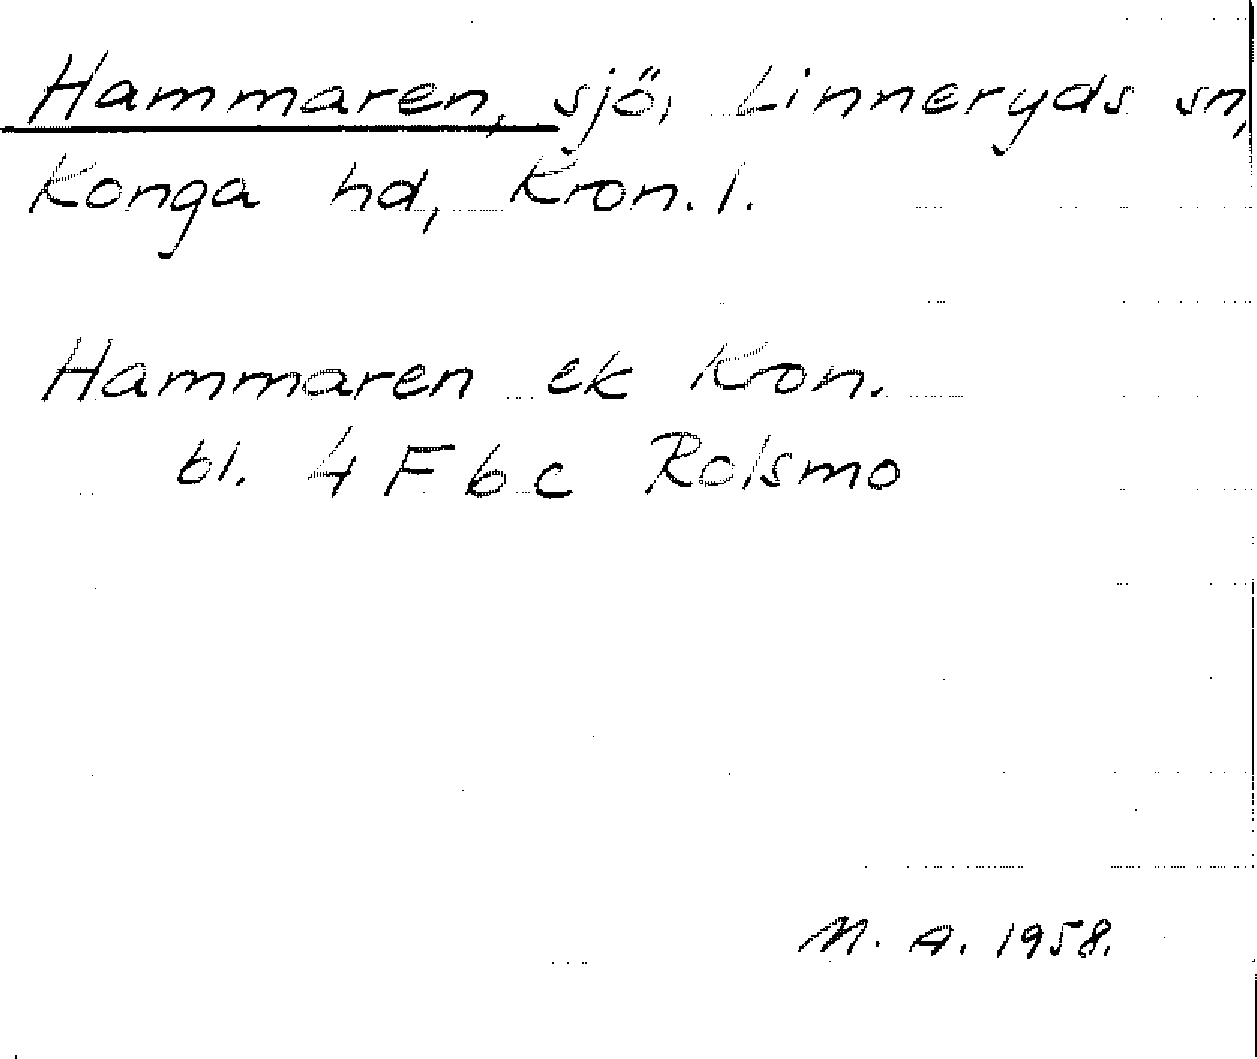 Hammaren, sjö, Linneryds sn,
Konga hd, Kron. l.
Hammaren ek Kron.
bl. 4 F b c Rolsmo
M. A. 1958.